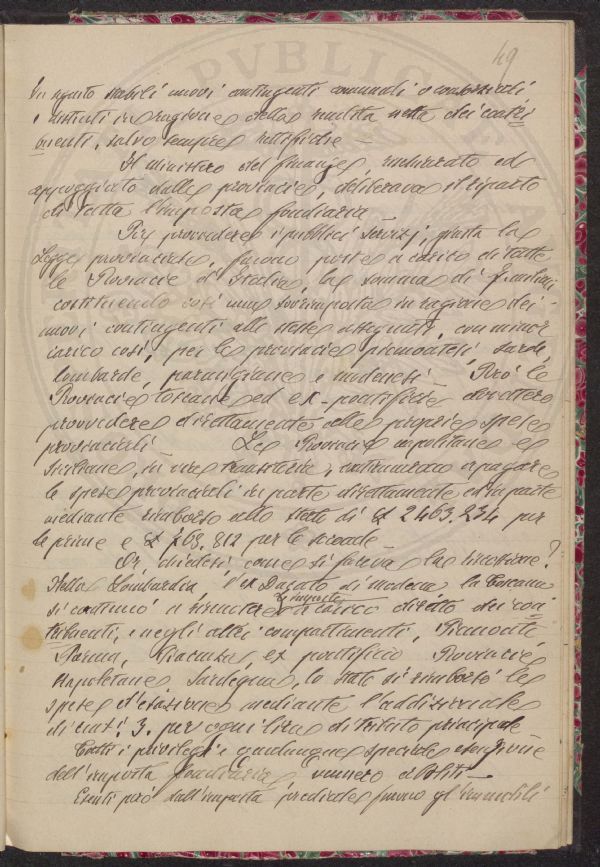 49
In agosto stabilì nuovi contingenti comunali o consorziali
e istituì in ragione della rendita netta dei contri
buenti, salvo sempre rettifiche —
Il ministero del finanze, autorizzato ed
appoggiato dalle provincie, deliberava il riparto
di tutta l'imposta fondiaria —
Per provvedere i pubblici servizj, giusta la
Legge provinciale, furono poste a carico di tutte
le Provincie d'Italia, la somma di milioni
costituendo così una sovrimposta in ragione dei
nuovi contingenti alle stesse assegnati, con minor
carico così, per le provincie piemontesi sarde,
lombarde, parmigiane e modenesi — Però le
Provincie toscane ed ex-pontificie dovettero
provvedere direttamente alle proprie spese
provinciali — Le Provincie napoletane e
siciliane, in via transitoria, continuarono a pagare
le spese provinciali in parte direttamente ed in parte
mediante rimborso allo stato di £ 2463.234 per
le prime e £ 763.812 per le seconde —
Or, chiedesi come si faceva la riscossione?
Nella Lombardia, l'ex Ducato di Modena la Toscana
si continuò a riscuotere l'imposta a carico diretto dei con
tribuenti, e negli altri compartimenti, Piemonte
Parma, Piacenza, ex pontificio Provincie
Napoletane Sardegna, lo Stato si rimborsò le
spese d'esazione mediante l'addizionale
di cent. 3. per ogni lira di tributo principale
Tutti i privilegi e qualunque speciale esenzione
dell'imposta fondiaria vennero aboliti —
Esenti però dall'imposta prediale furono gl'immobili